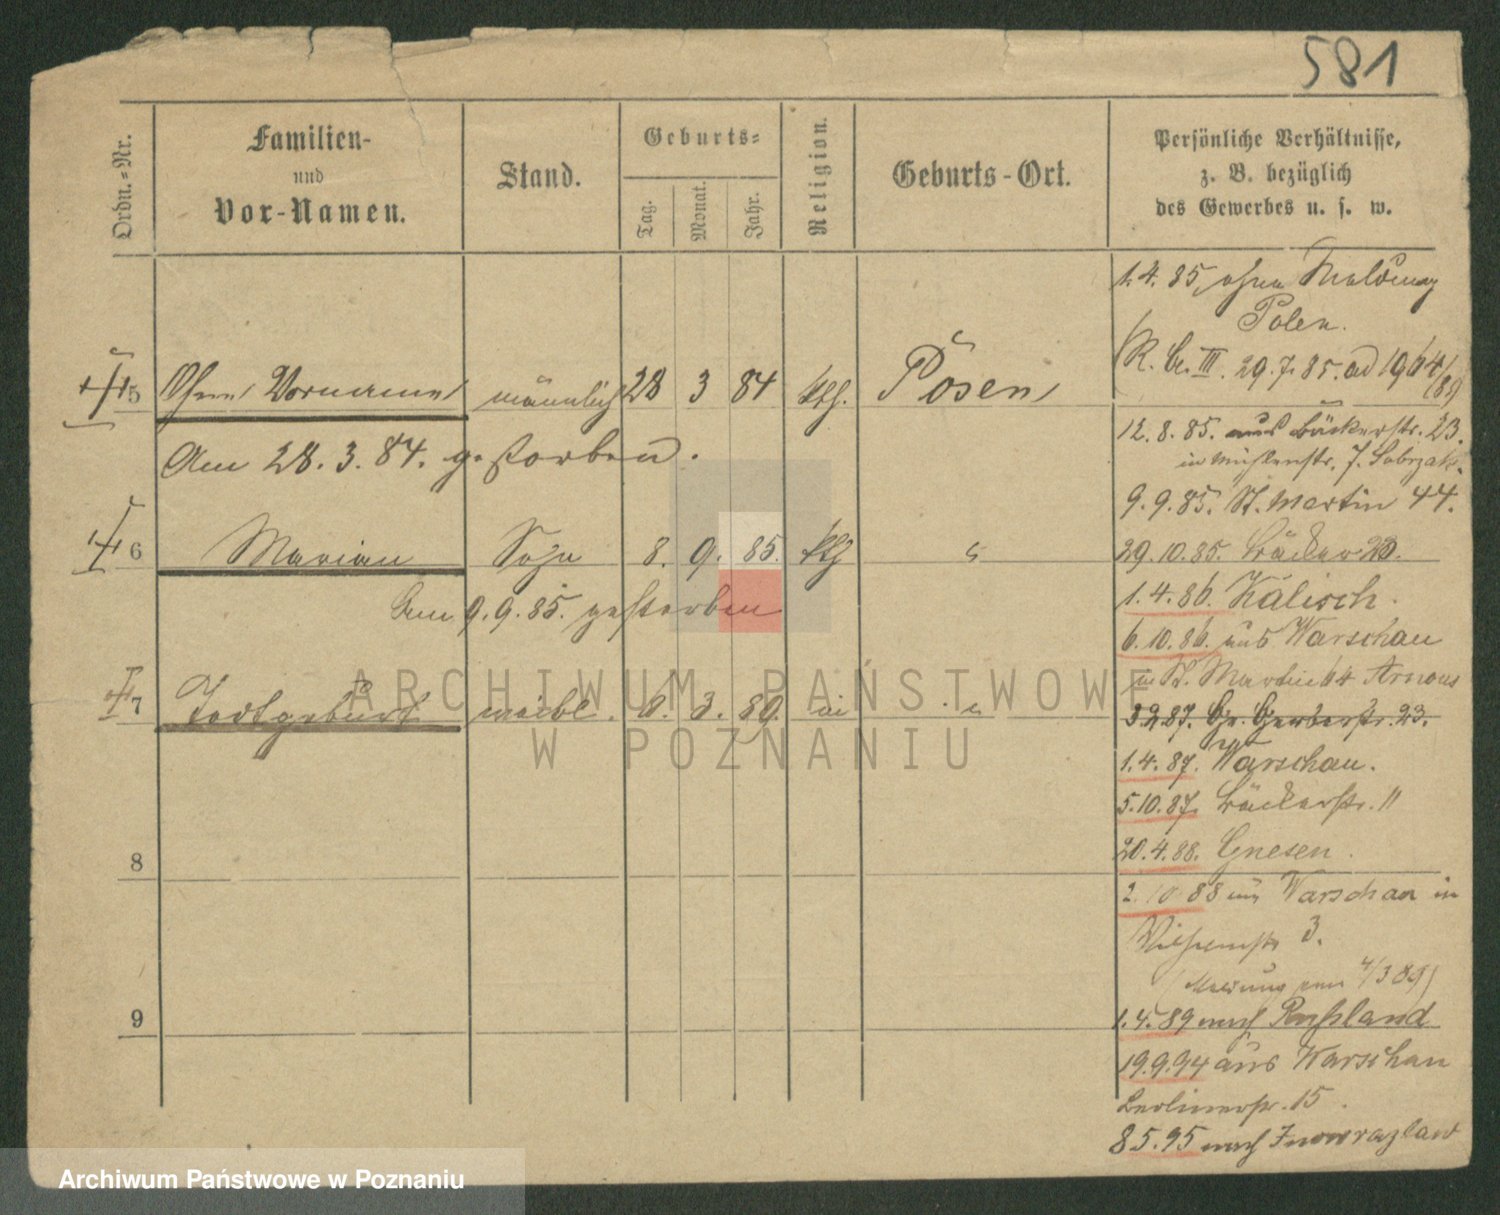 581
Ordn.-Nr.
Familien-
und
Vor-Namen.
Stand.
Geburts-
Tag.
Monat.
Jahr.
Religion.
Geburts-Ort.
Persönliche Verhältnisse,
z. B. bezüglich
des Gewerbes u. s. w.
5 Ohne Vorname männlich 28 3 84 kth. Posen
Am 28. 3. 84. gestorben.
6 Marian Sohn 8. 9. 85. kth "
Am 9. 9. 85. gestorben
7 Todtgeburt weibl. 6. 3. 89. "
8
9
1. 4. 85, ohne Meldung
Polen.
29. 7. 85. ad 1964/
12. 8. 85. aus Bäckerstr. 23.
in Mühlenstr. 7.
9. 9. 85. St. Martin 44.
29. 10. 85. Bäcker 23.
1. 4. 86. Kalisch.
6. 10. 86. aus Warschau
in St. Martin 64
3 2 87. Gr. Gerberstr. 23.
1. 4. 87. Warschau.
5. 10. 87. Bäckerstr. 11
20. 4. 88. Gnesen.
2. 10 88 aus Warschau in
Wilhelmstr 3.
(Meldung vom 4/3 89)
1. 4. 89 nach Rußland
19. 9. 94 aus Warschau
Berlinerstr. 15.
8 5. 95 nach Inowrazlaw
ARCHIWUM PAŃSTWOWE
W POZNANIU
Archiwum Państwowe w Poznaniu